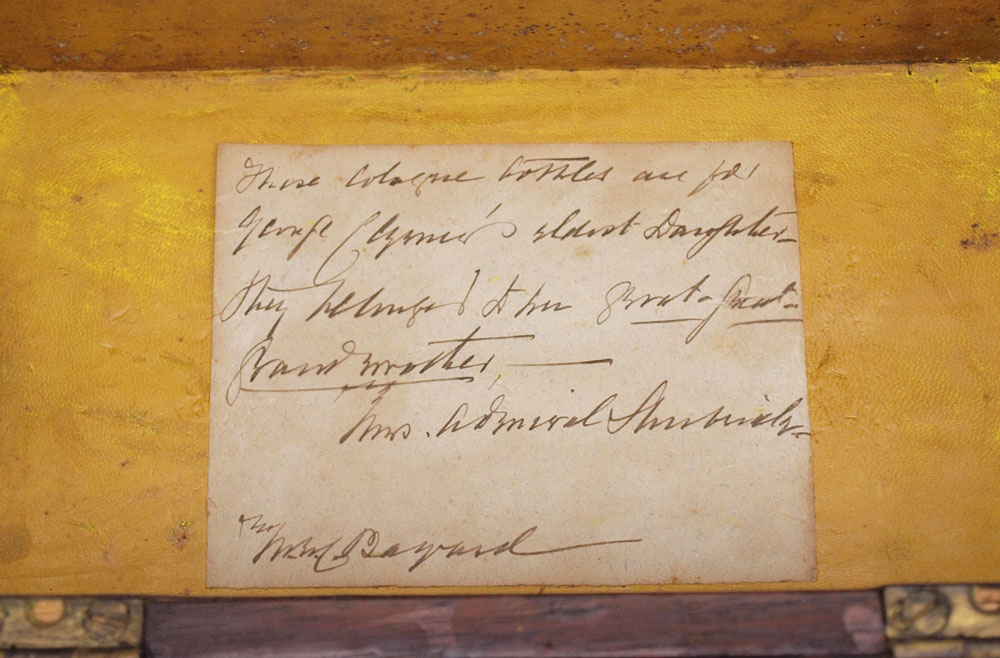 These Cologne bottles are for
George Clymer's eldest Daughter
They belonged to her Great-Great-
Grandmother,
Mrs. Admiral Shubrick
Bayard